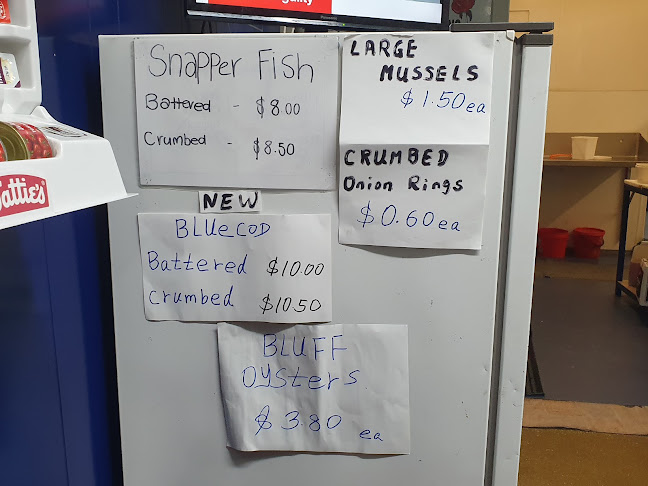 Snapper Fish
Battered - $8.00
Crumbed - $8.50
LARGE
MUSSELS
$1.50ea
CRUMBED
Onion Rings
$0.60ea
NEW
BLUECOD
Battered $10.00
Crumbed $10.50
BLUFF
OYSTERS
$3.80 ea
Wattie's
Panasonic